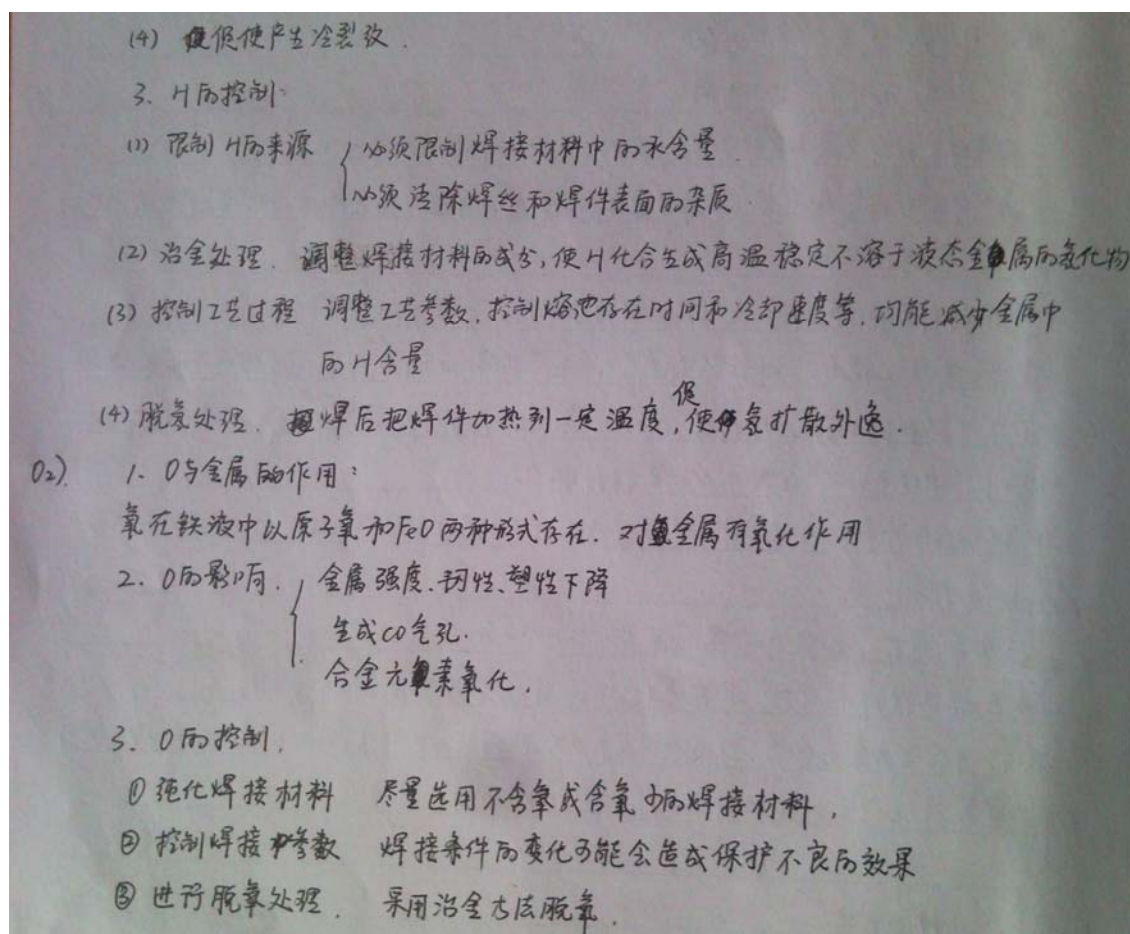 (4) 促使产生冷裂纹.
3. H的控制:
(1) 限制H的来源 { 必须限制焊接材料中的水含量.
必须清除焊丝和焊件表面的杂质.
(2) 冶金处理. 调整焊接材料的成分,使H化合生成高温稳定不溶于液态金属的氢化物
(3) 控制工艺过程 调整工艺参数.控制熔池存在时间和冷却速度等.均能减少金属中
的H含量
(4) 脱氢处理. 焊后把焊件加热到一定温度,促使氢扩散外逸.
O2). 1. O与金属的作用:
氧在铁液中以原子氧和FeO两种形式存在. 对金属有氧化作用
2. O的影响. { 金属强度.韧性、塑性下降
生成CO气孔.
合金元素氧化.
3. O的控制.
① 强化焊接材料 尽量选用不含氧或含氧少的焊接材料,
② 控制焊接参数 焊接条件的变化可能会造成保护不良的效果
③ 进行脱氧处理. 采用冶金方法脱氧.